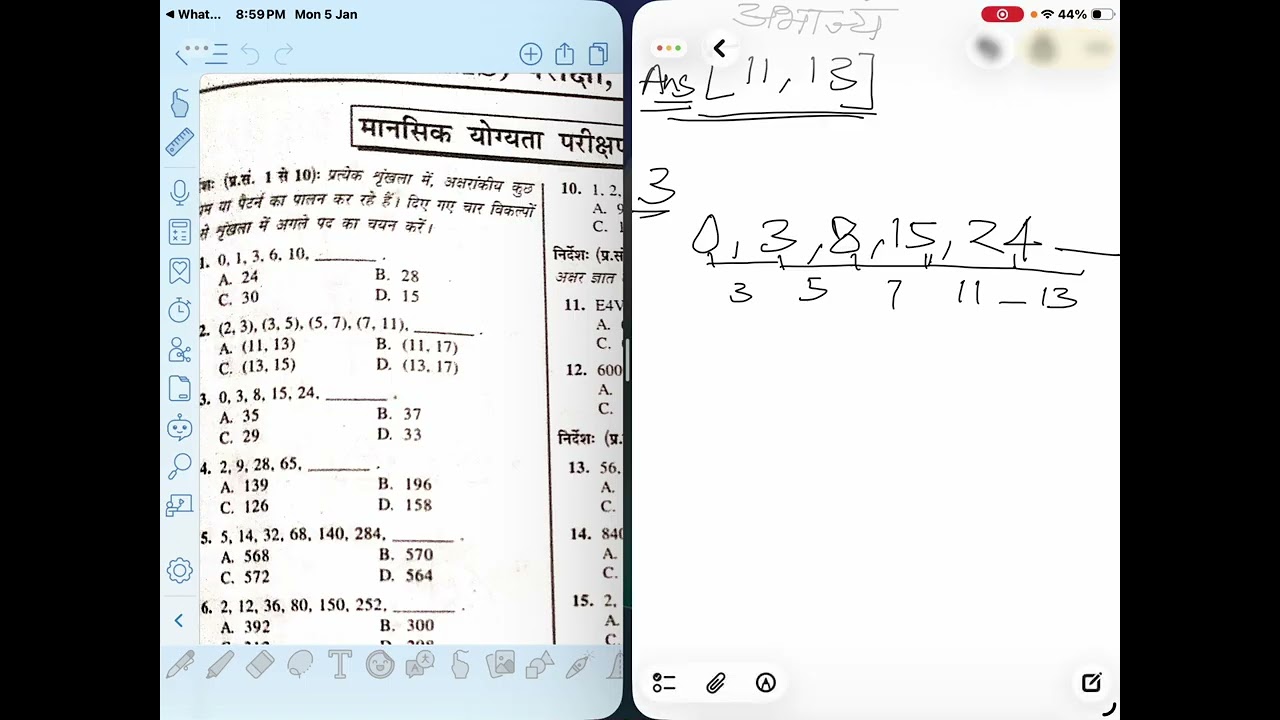 What...
8:59 PM Mon 5 Jan
परीक्षा,
मानसिक योग्यता परीक्षण
(प्र.सं. 1 से 10): प्रत्येक शृंखला में, अक्षरांकीय कुछ
या पैटर्न का पालन कर रहे हैं। दिए गए चार विकल्पों
से शृंखला में अगले पद का चयन करें।
1. 0, 1, 3, 6, 10, ________ .
A. 24 B. 28
C. 30 D. 15
2. (2, 3), (3, 5), (5, 7), (7, 11), ________ .
A. (11, 13) B. (11, 17)
C. (13, 15) D. (13, 17)
3. 0, 3, 8, 15, 24, ________ .
A. 35 B. 37
C. 29 D. 33
4. 2, 9, 28, 65, ________ .
A. 139 B. 196
C. 126 D. 158
5. 5, 14, 32, 68, 140, 284, ________ .
A. 568 B. 570
C. 572 D. 564
6. 2, 12, 36, 80, 150, 252, ________ .
A. 392 B. 300
10. 1, 2,
A. 9
C. 1
निर्देशः (प्र.सं
अक्षर ज्ञात
11. E4V
A.
C.
12. 600
A.
C.
निर्देशः (प्र.
13. 56,
A.
C.
14. 840
A.
C.
15. 2,
A.
C.
44%
अभाज्य
Ans [11, 13]
3
0, 3, 8, 15, 24 ___
3 5 7 11 – 13